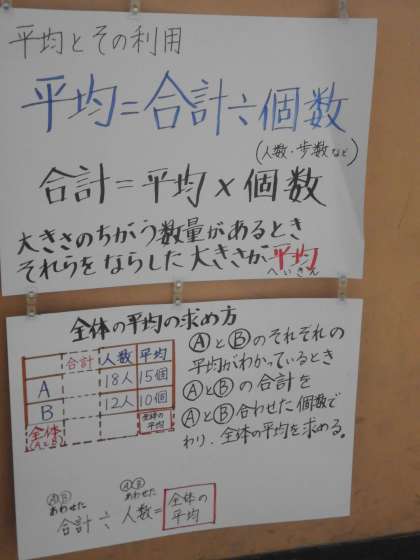 平均とその利用
平均=合計÷個数
(人数・歩数など)
合計=平均×個数
大きさのちがう数量があるとき
それらをならした大きさが平均
へいきん
全体の平均の求め方
合計 人数 平均
A 18人 15個
B 12人 10個
全体 全体の平均
(AとB)
ⒶとⒷのそれぞれの
平均がわかっているとき
ⒶとⒷの合計を
ⒶとⒷ合わせた個数で
わり、全体の平均を求める。
ⒶⒷ ⒶⒷ
あわせた あわせた
合計 ÷ 人数 = 全体の平均